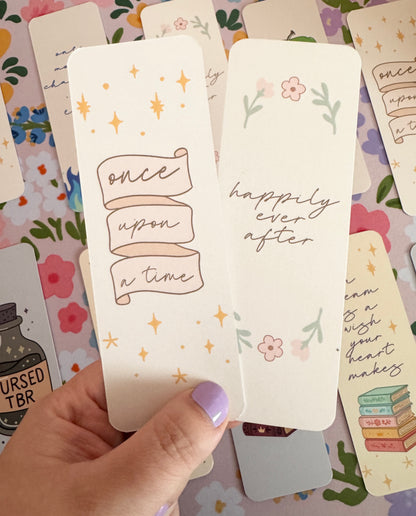 once
upon
a time
happily
ever
after
once
upon
a time
CURSED
TBR
is a
wish
your
heart
makes